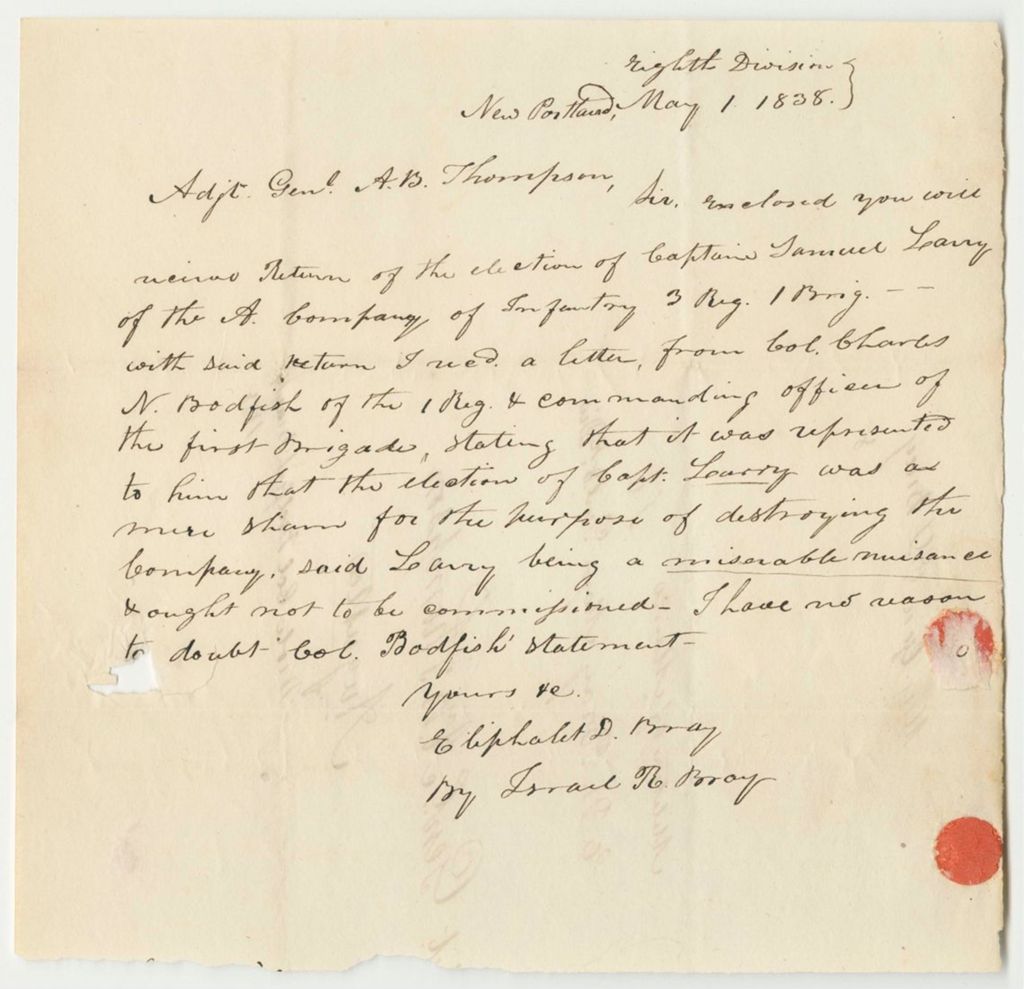 Eighth Division }
New Portland, May 1. 1838. }
Adjt. Genl. A.B. Thompson,
Sir. Enclosed you will
recieve Return of the election of Captain Samuel Larry
of the A. Company of Infantry 3 Reg. 1 Brig. - -
with said return I recd. a letter, from Col. Charles
N. Bodfish of the 1 Reg. & commanding officer of
the first Brigade, stating that it was represented
to him that the election of Capt. Larry was a
mere sham for the purpose of destroying the
Company, said Larry being a miserable nuisance
& ought not to be commissioned - I have no reason
to doubt Col. Bodfish' statement -
Yours &c.
Eliphalet D. Bray
By Israel R. Bray